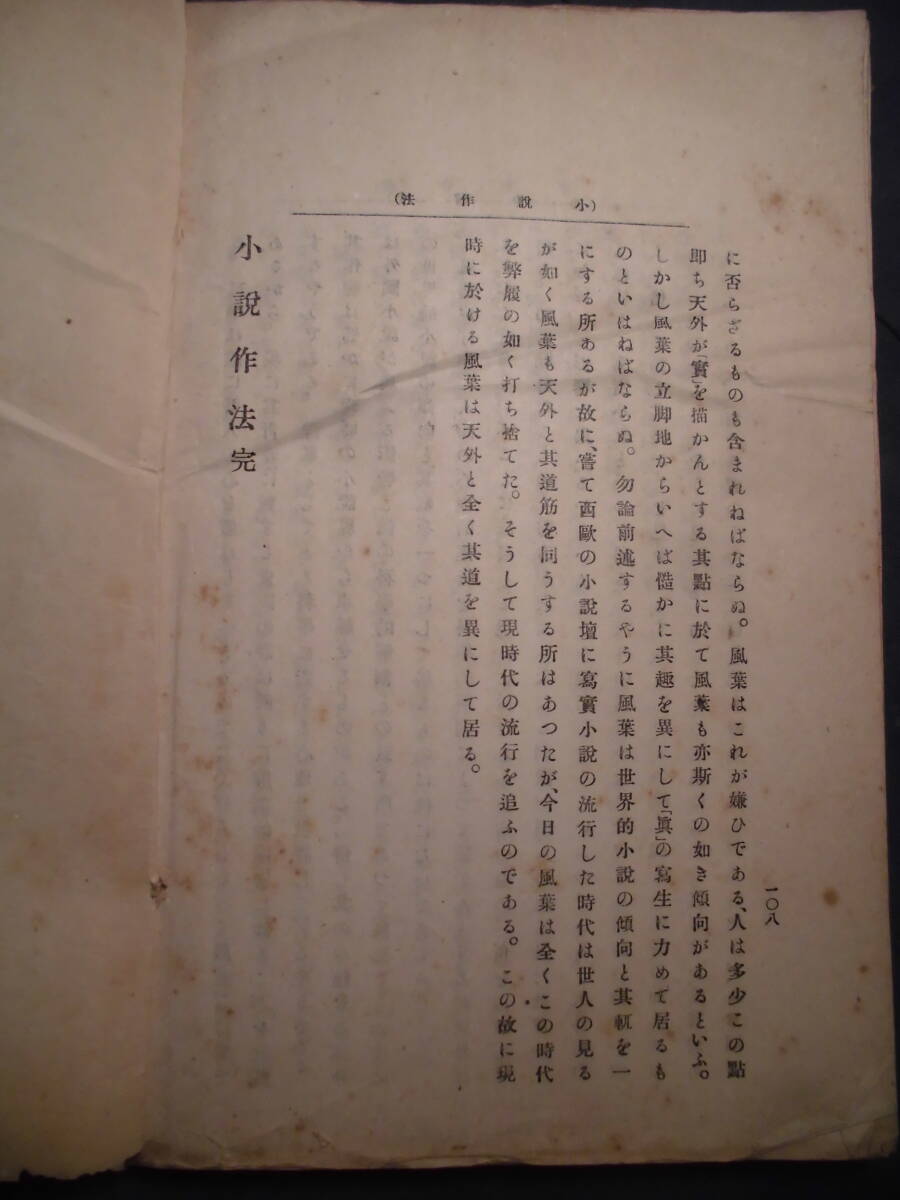 (小說作法)
一〇八
に否らざるものも含まれねばならぬ。風葉はこれが嫌ひである、人は多少この點
卽ち天外が「實」を描かんとする其點に於て風葉も亦斯くの如き傾向があるといふ。
しかし風葉の立脚地からいへば慥かに其趣を異にして「眞」の寫生に力めて居るも
のといはねばならぬ。勿論前述するやうに風葉は世界的小說の傾向と其軌を一
にする所あるが故に、嘗て西歐の小說壇に寫實小說の流行した時代は世人の見る
が如く風葉も天外と其道筋を同うする所はあつたが、今日の風葉は全くこの時代
を弊履の如く打ち捨てた。そうして現時代の流行を追ふのである。この故に現
時に於ける風葉は天外と全く其道を異にして居る。
小說作法完